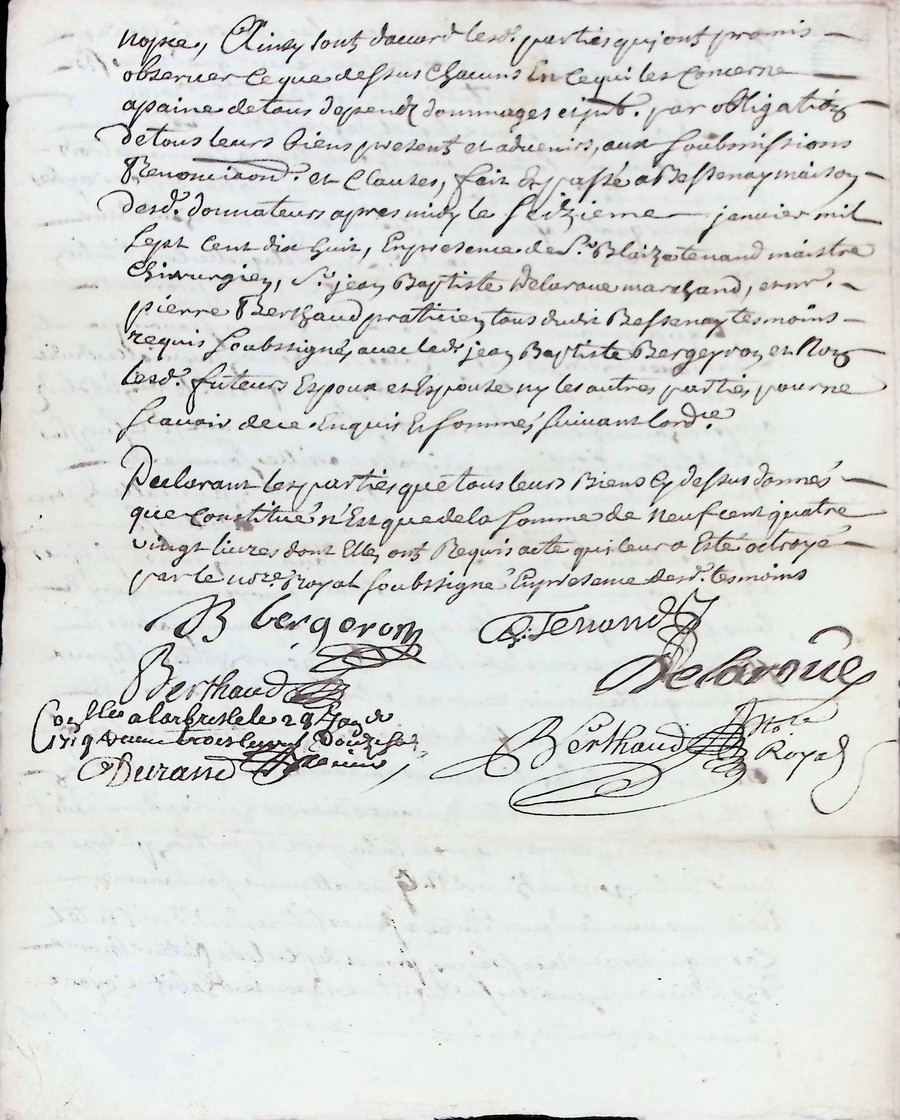 Ainsy sont d'accord lesd. parties qui ont promis
observer ce que dessus chacuns en ce qui les concerne
a paine de tous depend dommages et int. par obligation
de tous leurs biens present et advenirs, aux soubmissions
Renonciaond. et Clauses, fait et passé a Bessenay maison
desd. donnateurs apres midy le seizieme janvier mil
sept cent dix huit, En presence de Sr. Blaize tenand maistre
Chirurgien, Sr. jean Baptiste Delaroue marchand, et mr.
pierre Berthaud praticien tous dudit Bessenay tesmoins
requis soubssignés avec led. jean Baptiste Bergeron et Non
lesd. futeurs Espoux et Espouze ny les autres parties pour ne
scavoir de ce Enquis et sommés suivant lordce
Declarant les parties que tous leurs Biens cy dessus donnés
que constitué n'Est que de la somme de neuf cent quatre
vingt livres dont Elles ont Requis acte qui leur a Esté octroyé
par le nore. Royal soubssigné En presence desd. tesmoins
B bergeron B. Tenand
Berthaud Delaroüe
Berthaud Nore Royal
Conllé a larbresle le 29 janv
1719 trois livres douze s
Durand